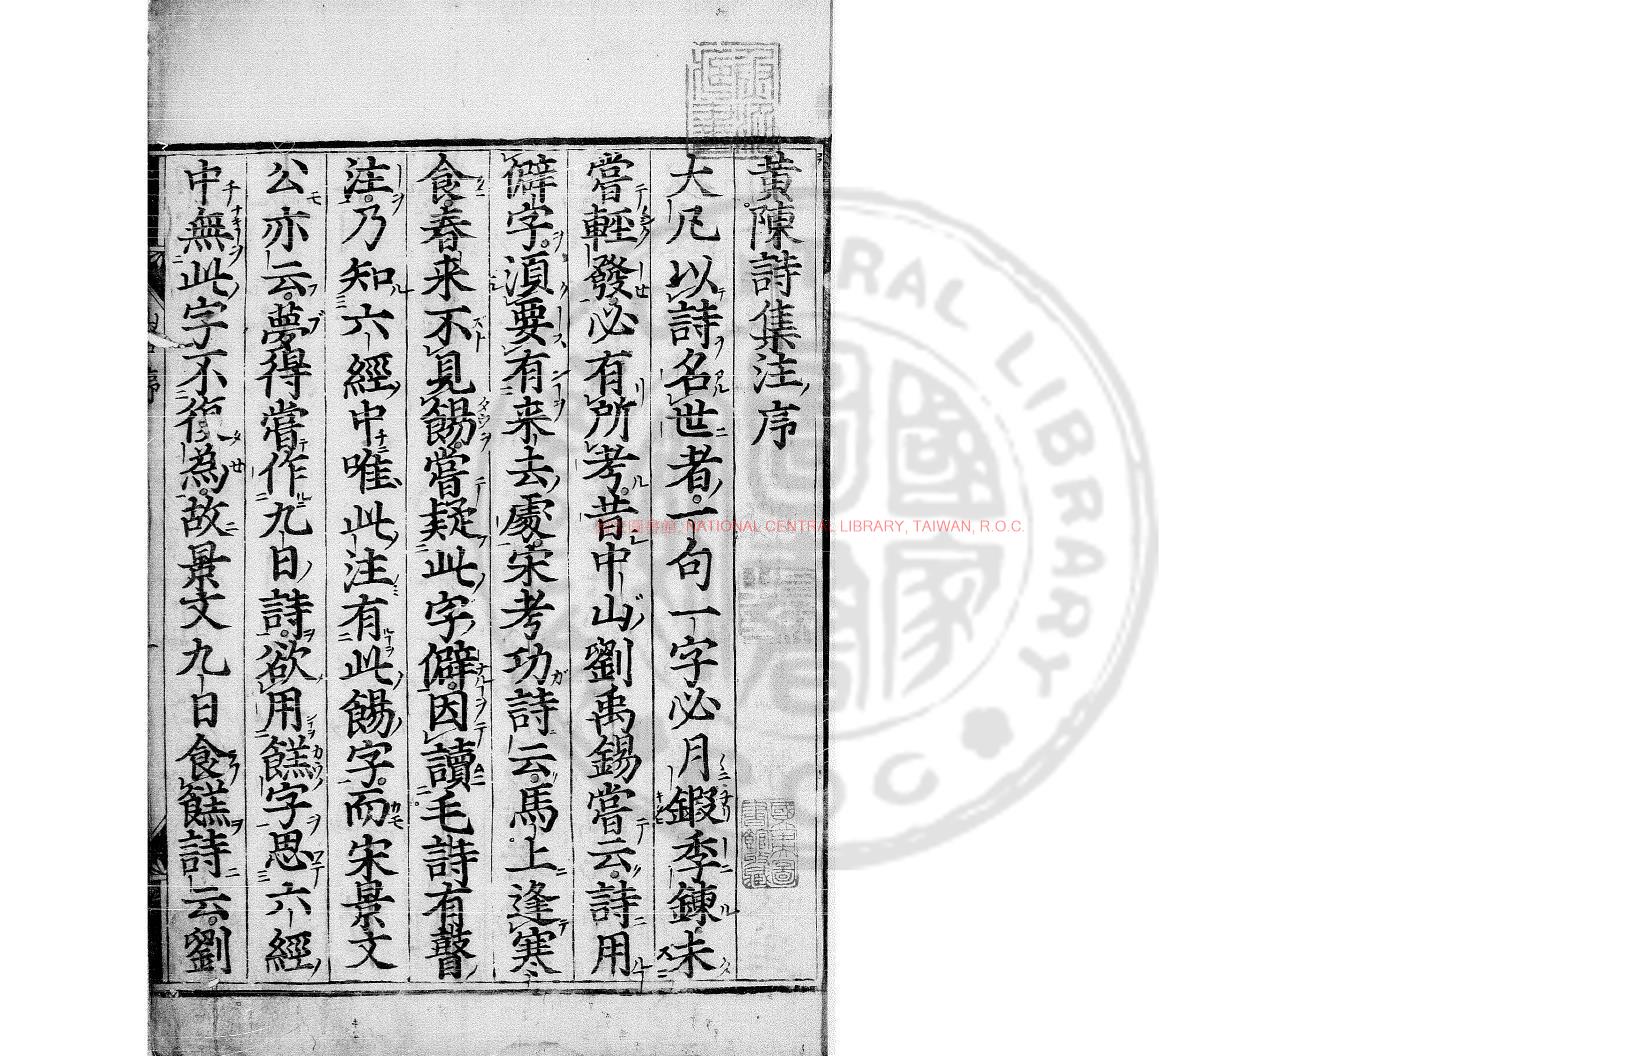 黃陳詩集注序
大凡以詩名世者一句一字必月鍛季鍊未
嘗輕發必有所考昔中山劉禹錫嘗云詩用
僻字湏要有来去處宋考功詩云馬上逢寒
食春来不見餳嘗疑此字僻因讀毛詩有瞽
注乃知六經中唯此注有此餳字而宋景文
公亦云夢得嘗作九日詩欲用餻字思六經
中無此字不復為故景文九日食餻詩云劉
NATIONAL CENTRAL LIBRARY, TAIWAN, R.O.C.